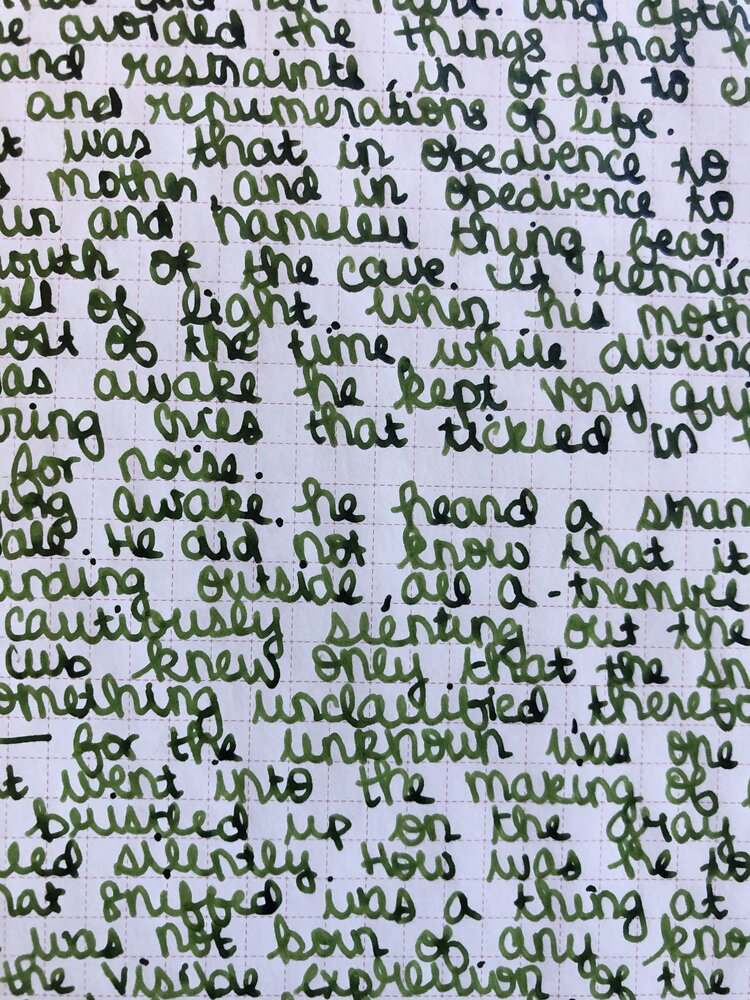 he avoided the things that
and restraints, in order to
and renumerations of life.
it was that in obedience to
s mother, and in obedience to
un and nameless thing, fear
outh of the cave. It remai
all of light. When his moth
ost of the time, while during
as awake he kept very qu
ring cries that tickled in
for noise.
ing awake, he heard a stran
all. He did not know that it
anding outside, all a-tremble
cautiously scenting out the
cub knew only that the sn
omething unclassified therefo
— for the unknown was one
t went into the making of
bristled up on the gray
led silently. How was he to
hat sniffed was a thing at
was not born of any kno
the visible expression of the